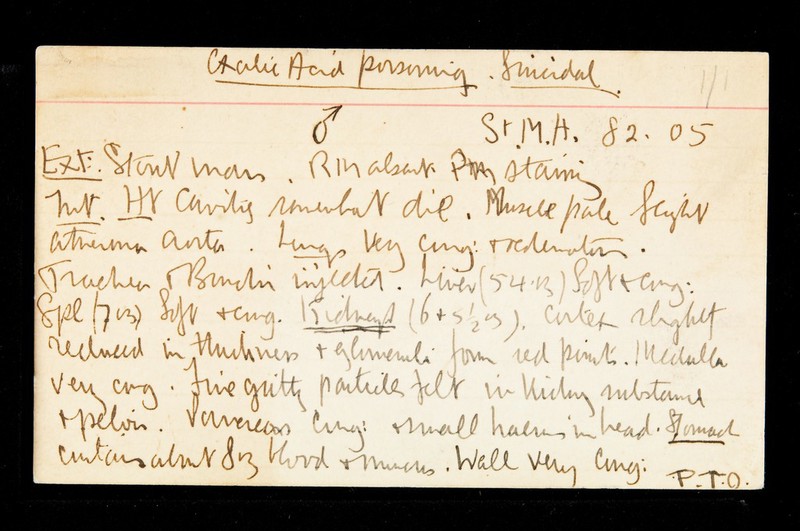 Oxalic Acid poisoning. Suicidal. 1/1
♂ St. M. H. 82. 05
Ext: Stout man. R M absent P M staining
Int. Ht Cavities somewhat dil. Muscle pale Slight
atheroma aorta. Lungs Very cong: + oedematous.
Trachea & Bronchi injected. Liver (54 oz) Soft & cong:
Spl (7 oz) Soft & cong. Kidneys (6 + 5½ oz). Cortex slightly
reduced in thickness & glomeruli form red points. Medulla
very cong. Fine gritty particles felt in kidney substance
& pelvis. Pancreas Cong: & small haems in head. Stomach
contains about 8 oz blood & mucus. Wall very Cong:
P.T.O.